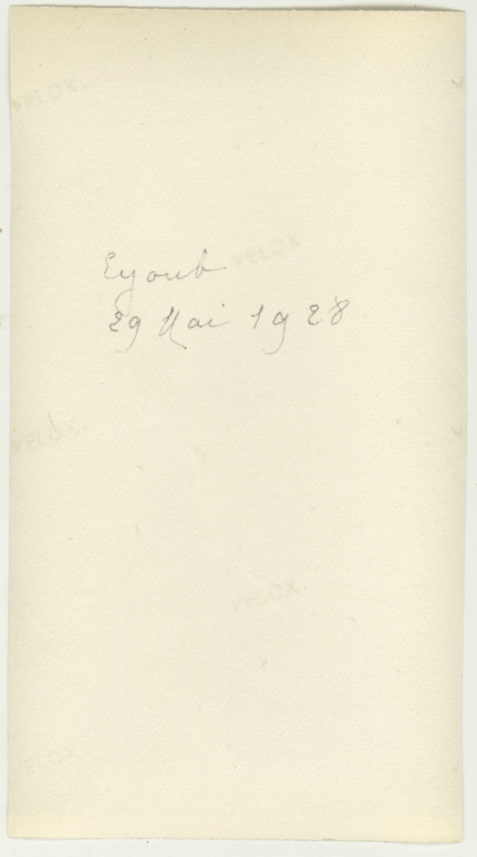 VELOX.
VELOX
Eyoub
29 Mai 1928
VELOX.
VELOX.
VELOX